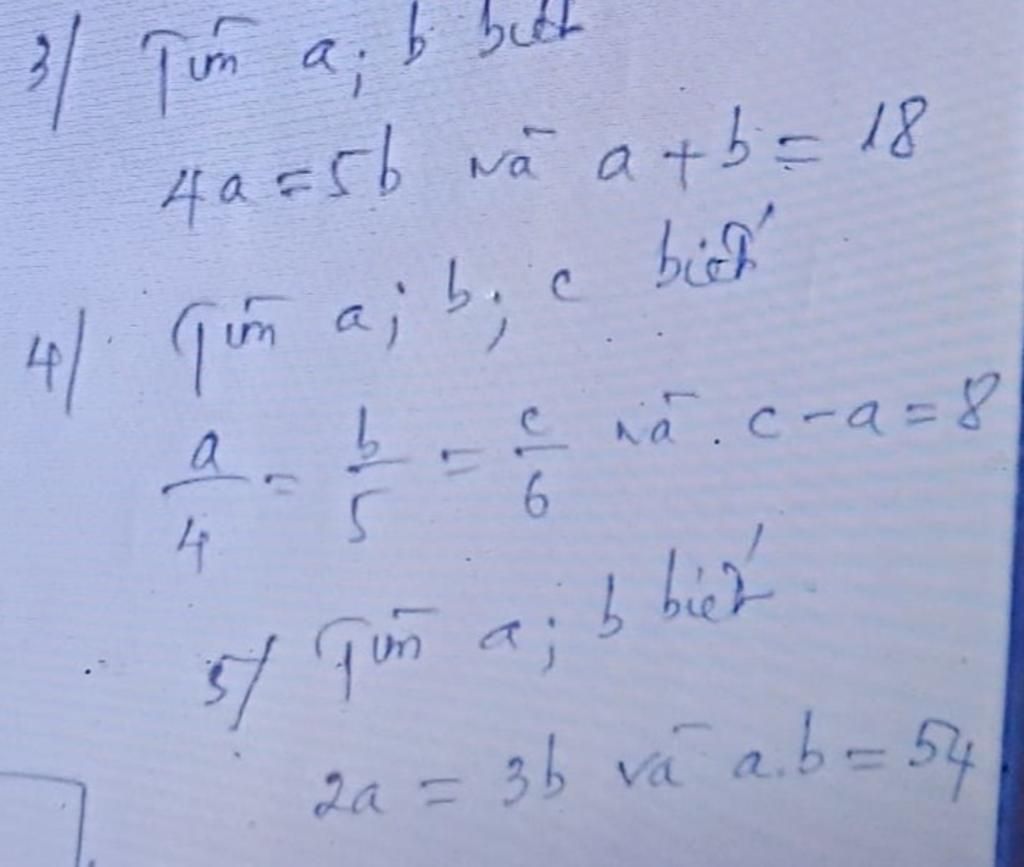 3/ Tìm a; b biết
4a = 5b và a + b = 18
4/ Tìm a; b; c biết
a/4 = b/5 = c/6 và c - a = 8
5/ Tìm a; b biết
2a = 3b và a.b = 54